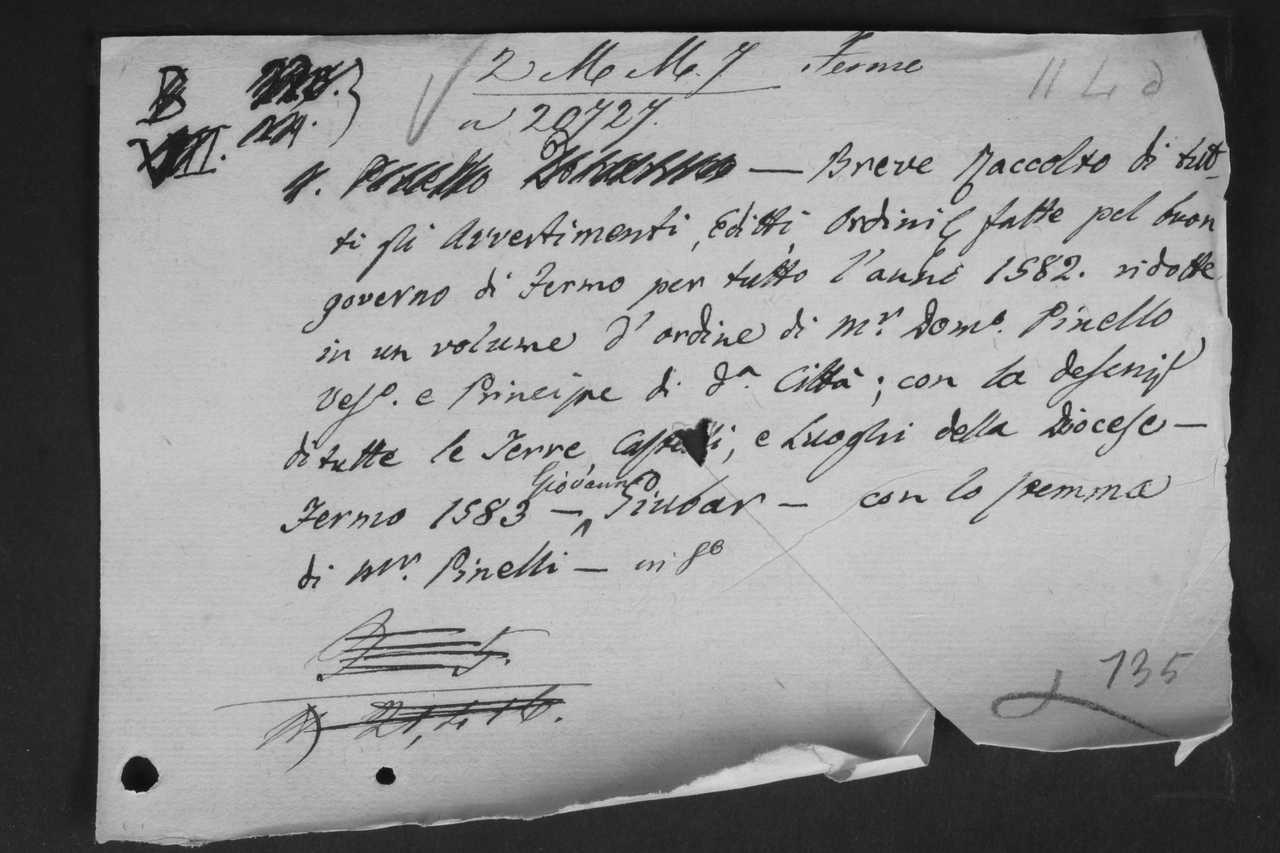 2 M M. 7 Fermo
a 20727.
— Breve Raccolto di tut-
ti gli Avvertimenti, Editti, Ordini fatte pel buon
governo di Fermo per tutto l'anno 1582. ridotte
in un volume d'ordine di Mr. Domo. Pinello
Vesco. e Principe di da. Città; con la descriz
di tutte le Terre Castelli, e Luoghi della Diocese —
Fermo 1583 — Giovanni Giubar — con lo stemma
di Mr. Pinelli — in 8o
735